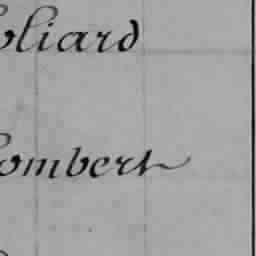 oliard
ombert